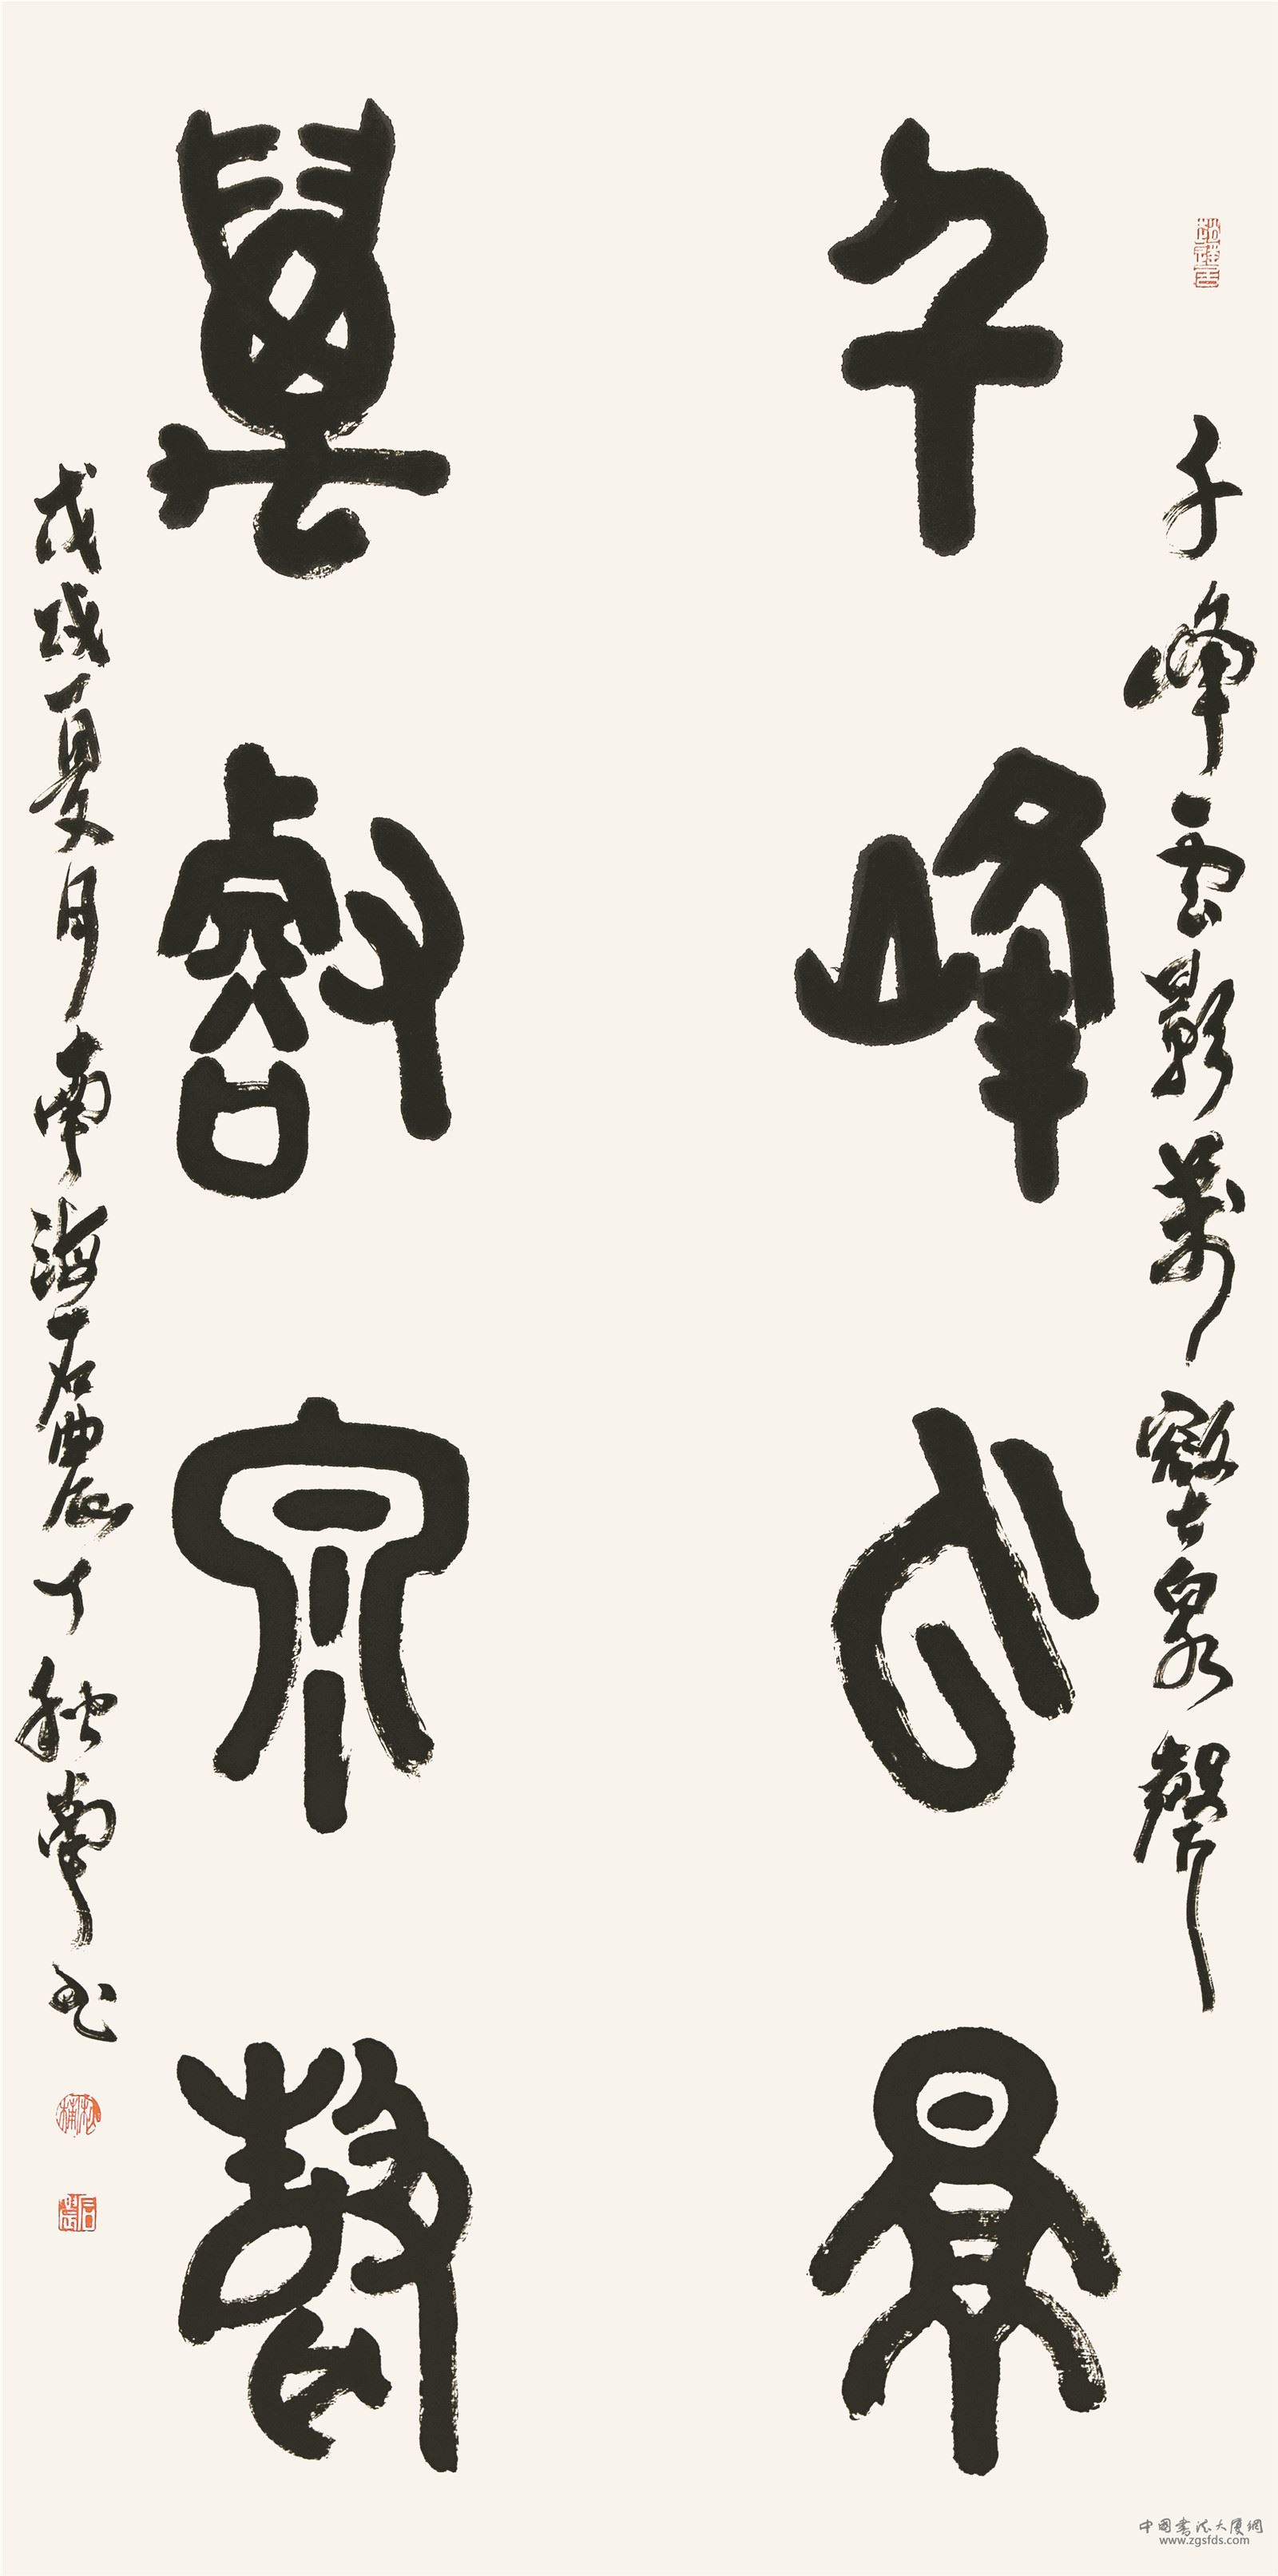 千峰雲影萬壑泉聲
千峰云景
萬壑泉聲
戊戌夏月南海石農丁秋南书
中国書法大厦網
www.zgsfds.com